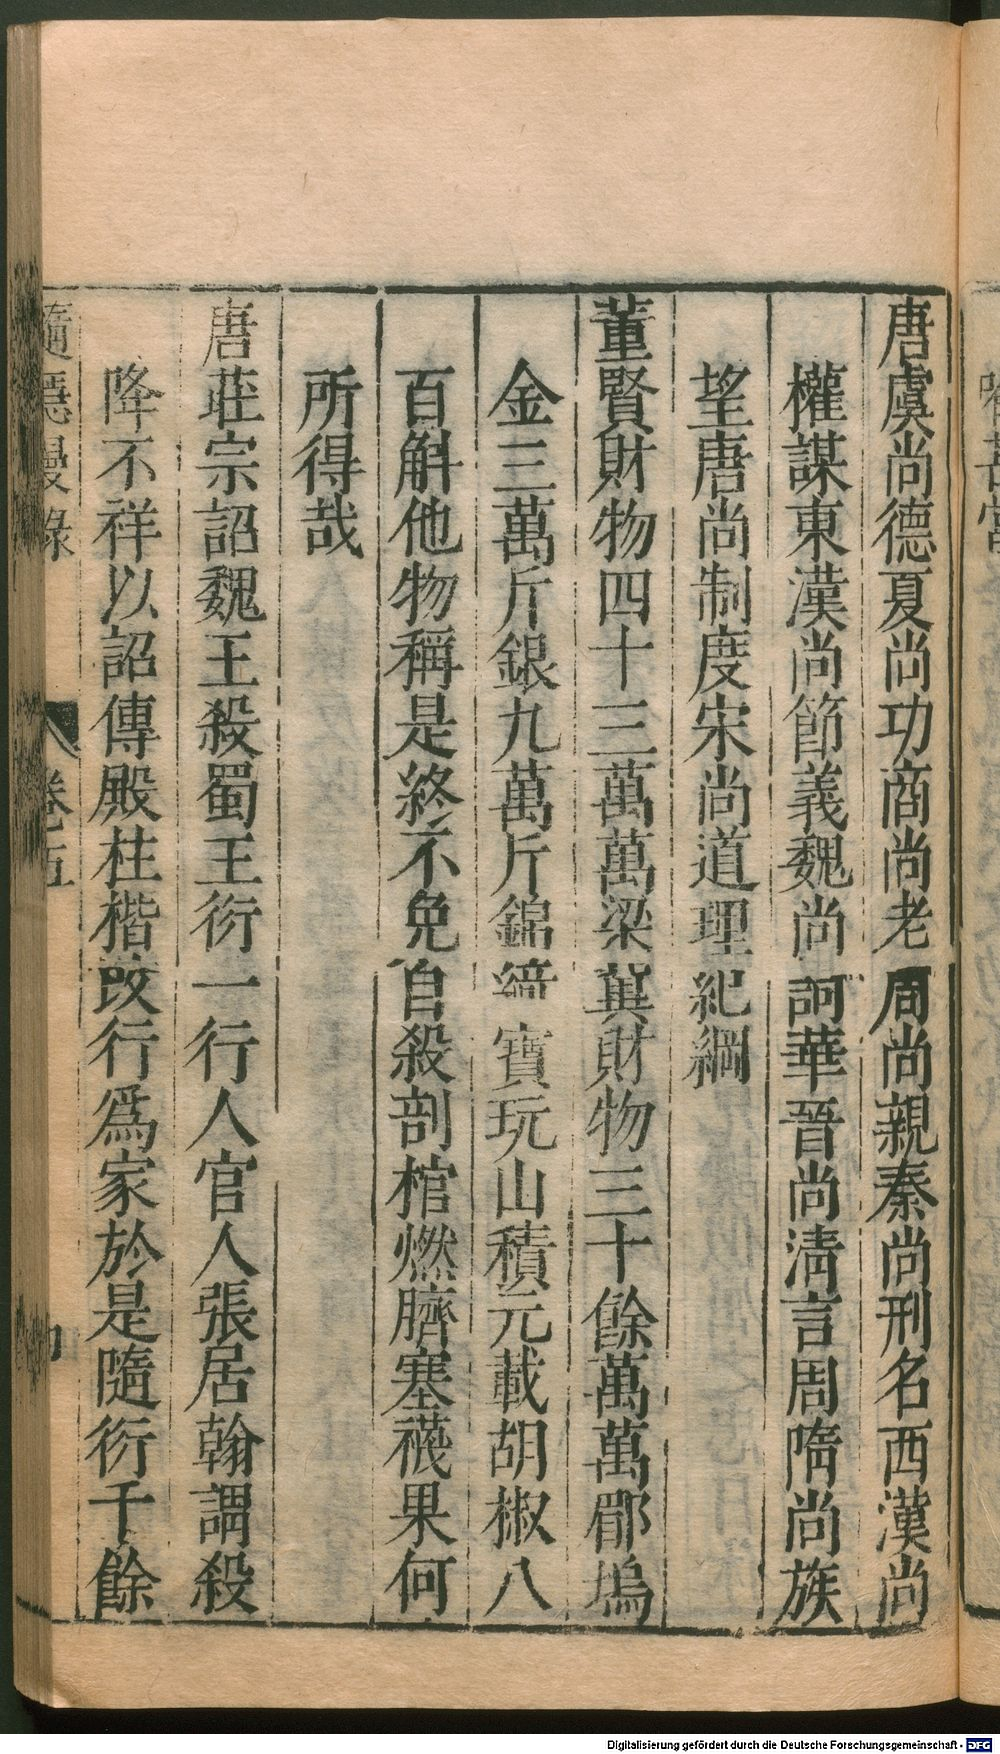 唐虞尚德夏尚功商尚老周尚親秦尚刑名西漢尚
權謀東漢尚節義魏尚詞華晉尚清言周隋尚族
望唐尚制度宋尚道理紀綱
董賢財物四十三萬萬梁冀財物三十餘萬萬郿塢
金三萬斤銀九萬斤錦綺寶玩山積元載胡椒八
百斛他物稱是終不免自殺剖棺燃臍塞襪果何
所得哉
唐莊宗詔魏王殺蜀王衍一行人官人張居翰謂殺
降不祥以詔傳殿柱楷改行爲家於是隨衍千餘
隨隱漫錄 卷五
Digitalisierung gefördert durch die Deutsche Forschungsgemeinschaft - DFG